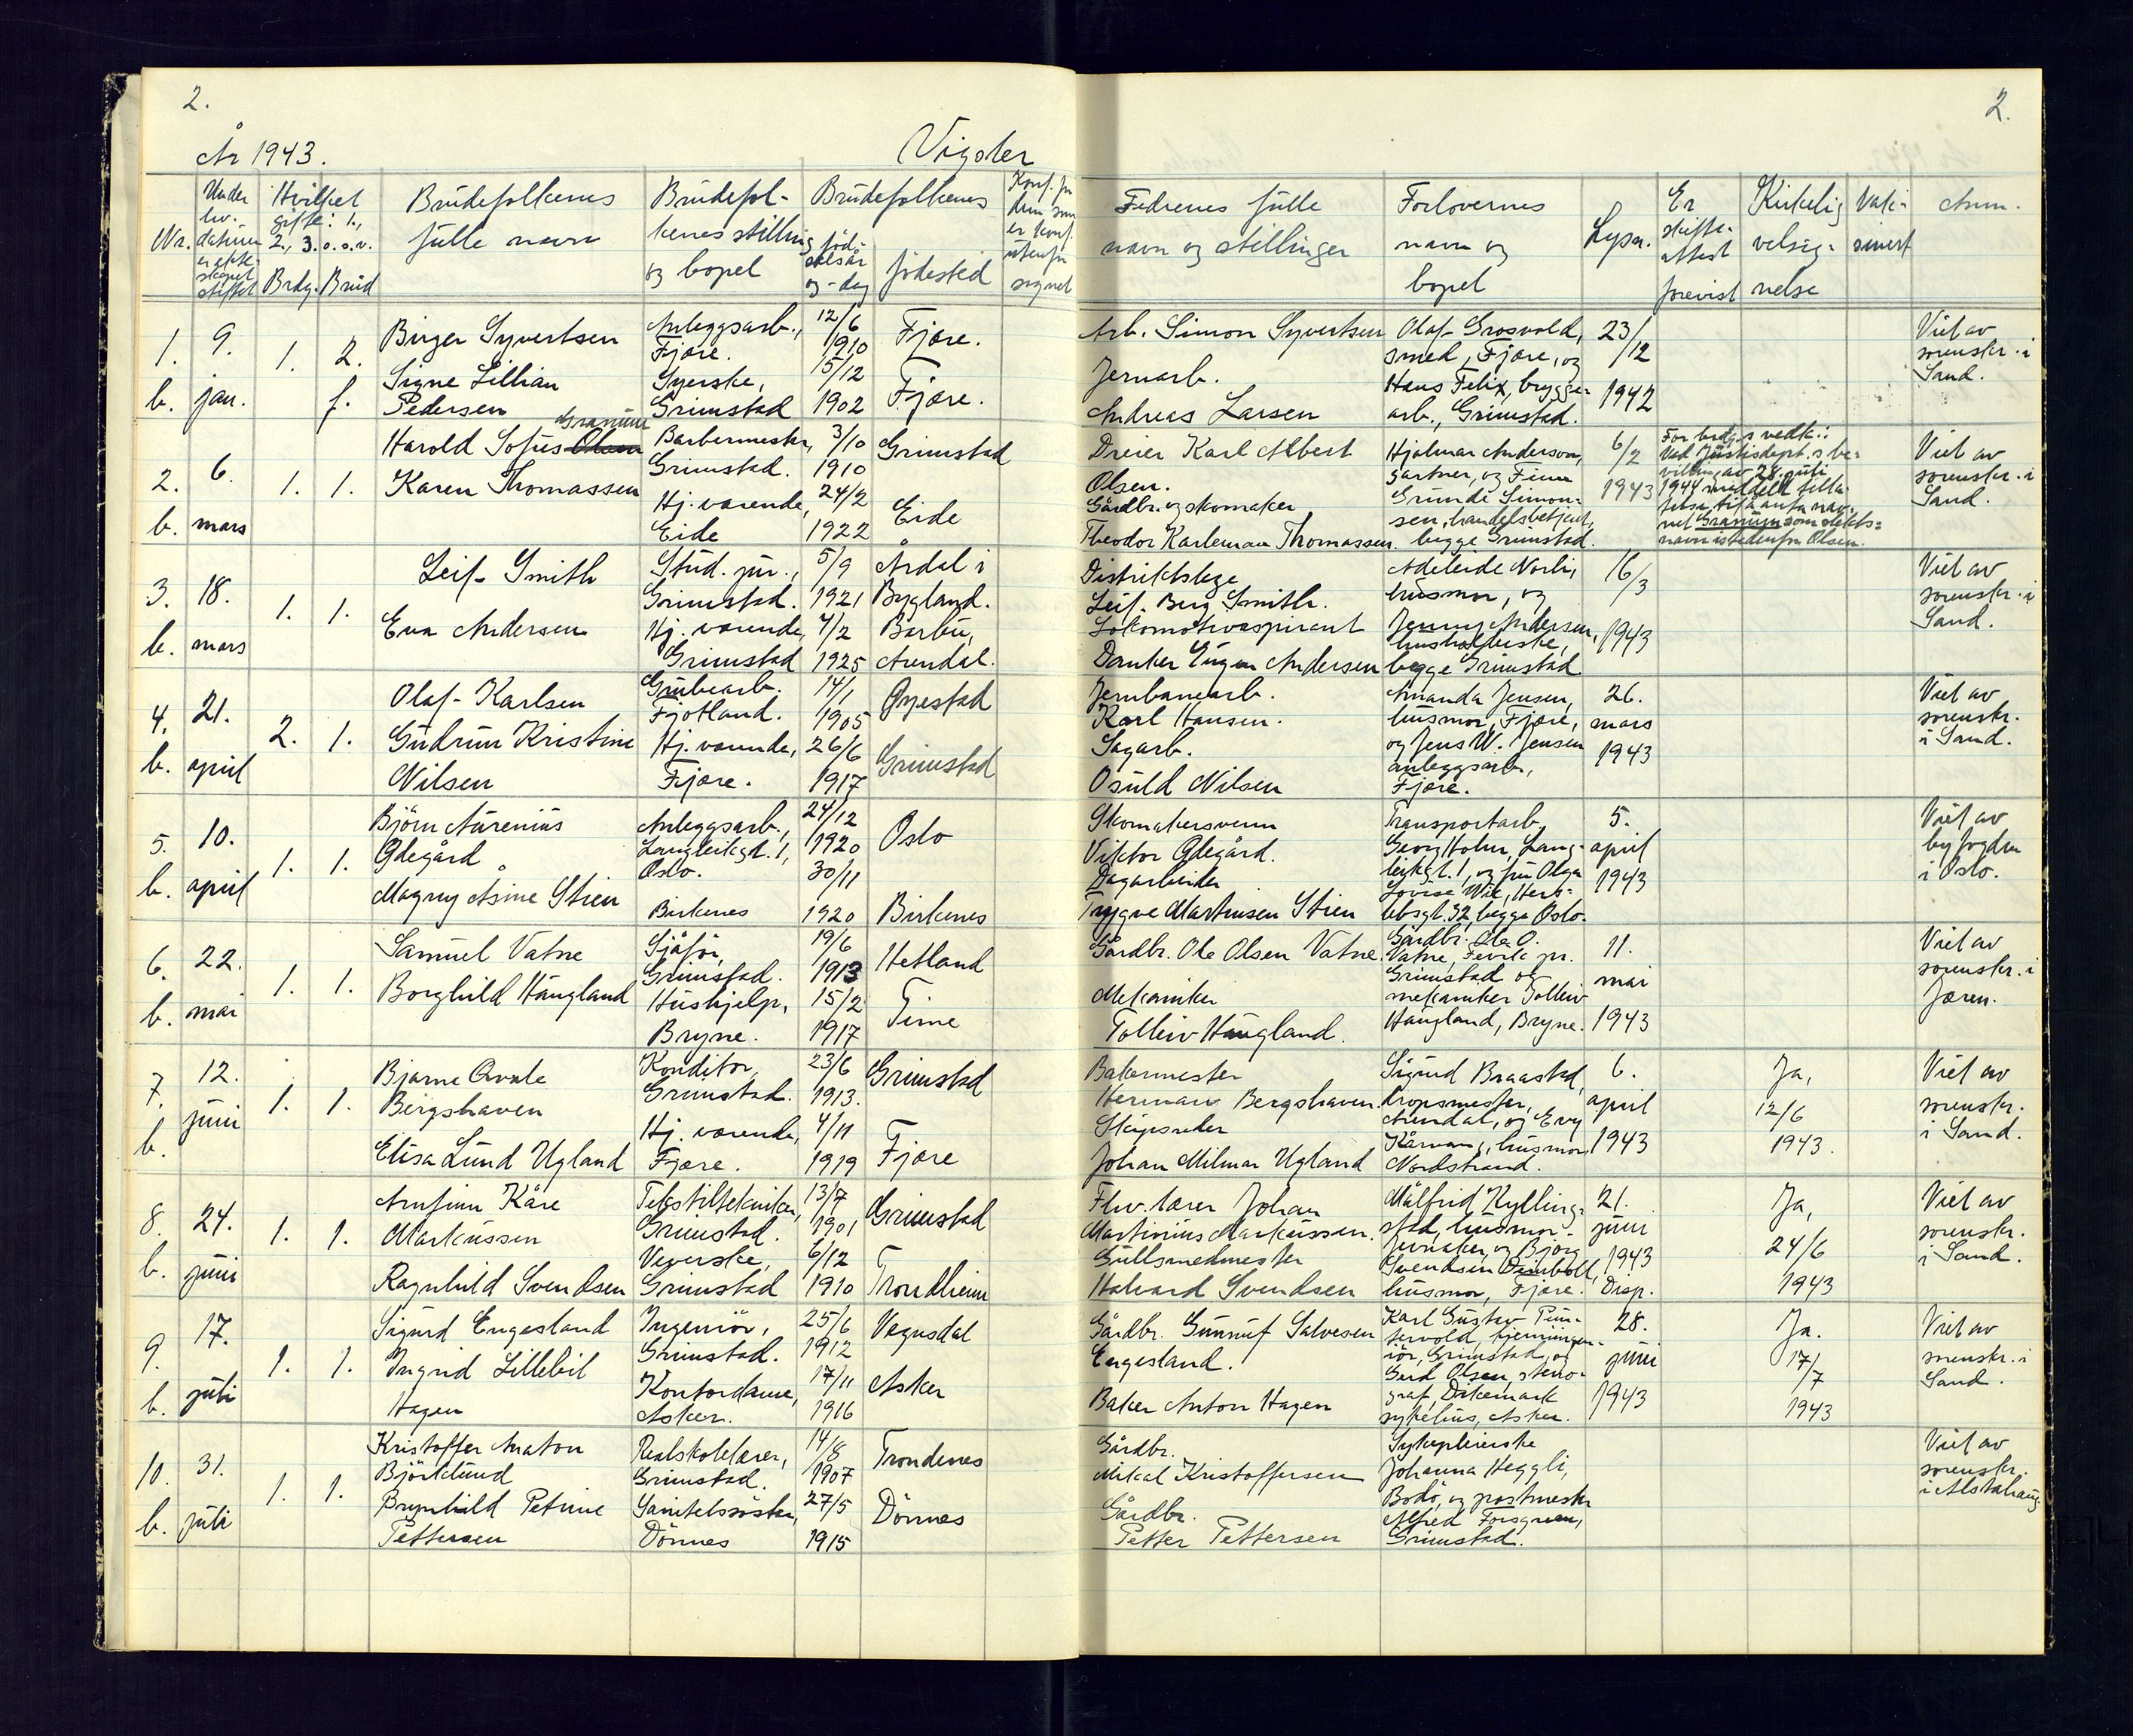 2.
År 1943.
Vigsler
Nr.
Under hv. datum er ekteskapet stiftet
Hvilket gifte: 1., 2., 3. o.s.v.
Brdg. Brud
Brudefolkenes fulle navn
Brudefolkenes stilling og bopel
Brudefolkenes
fødselsår og -dag
fødested
1. b.
9. jan.
1. 2. f.
Birger Syvertsen
Signe Lillian
Pedersen
Anleggsarb.,
Fjære.
Syerske,
Grimstad
12/6
1910
15/12
1902
Fjære.
Fjære.
2. b.
6. mars
1. 1.
Granum
Harold Sofus Olsen
Karen Thomassen
Barbermester,
Grimstad.
Hj.værende,
Eide
3/10
1910
24/2
1922
Grimstad
Eide
3. b.
18. mars
1. 1.
Leif Smith
Eva Andersen
Stud. jur.,
Grimstad.
Hj. værende,
Grimstad
5/9
1921
4/2
1925
Årdal i
Bygland.
Barbu,
Arendal.
4. b.
21. april
2. 1.
Olaf Karlsen
Gudrun Kristine
Nilsen
Grubearb.
Fjotland.
Hj. værende,
Fjære.
14/1
1905
26/6
1917
Øyestad
Grimstad
5. b.
10. april
1. 1.
Björn Aurenius
Ödegård
Magny Åsine Stien
Anleggsarb.,
Langleikgt. 1,
Oslo.
Birkenes
24/12
1920
30/11
1920
Oslo
Birkenes
6. b.
22. mai
1. 1.
Samuel Vatne
Borghild Haugland
Sjåfør,
Grimstad.
Hushjelp,
Bryne.
19/6
1913
15/2
1917
Hetland
Time
7. b.
12. juni
1. 1.
Bjarne Qvale
Bergshaven
Elisa Lund Ugland
Konditor,
Grimstad.
Hj. værende,
Fjære.
23/6
1913.
4/11
1919
Grimstad
Fjære
8. b.
24. juni
1. 1.
Arnfinn Kåre
Markussen
Ragnhild Svendsen
Tekstiltekniker,
Grimstad.
Veverske,
Grimstad
13/7
1901
6/12
1910
Grimstad
Trondheim
9. b.
17. juli
1. 1.
Sigurd Engesland
Ingrid Lillebil
Hagen
Ingeniör,
Grimstad.
Kontordame,
Asker.
25/6
1912
17/11
1916
Vegusdal
Asker
10. b.
31. juli
1. 1.
Kristoffer Anaton
Björklund
Brynhild Petrine
Pettersen
Realskolelærer,
Grimstad.
Sanitetssöster,
Dönnes
14/8
1907
27/5
1915
Trondenes
Dönnes
2.
Fedrenes fulle navn og stillinger
Forlovernes navn og bopel
Lysn.
Er skifteattest forevist
Kirkelig velsignelse
Vaksinert
Anm.
Arb. Simon Syvertsen
Jernarb.
Andreas Larsen
Olaf Grosvold,
smed, Fjære, og
Hans Felix, brygge-
arb., Grimstad.
23/12
1942
Viet av
sorenskr. i
Sand.
Dreier Karl Albert
Olsen.
Gårdbr. og skomaker
Theodor Karleman Thomassen.
Hjalmar Anderson,
gartner, og Finn
Grunde Simon-
sen, handelsbetjent,
begge Grimstad.
6/2
1943
For brdg.s vedk.:
Ved Justisdept.s be-
villing av 28. juli
1944 meddelt tilla-
telse til å anta nav-
net Granum som slekts-
navn istedenfor Olsen.
Viet av
sorenskr. i
Sand.
Distriktslege
Leif Berg Smith.
Lokomotivaspirant
Danker Eugen Andersen
Adeleide Norli,
husmor, og
Jenny Andersen,
husholderske,
begge Grimstad
16/3
1943
Viet av
sorenskr. i
Sand.
Jernbanearb.
Karl Hansen.
Sagarb.
Osuld Nilsen
Amanda Jensen,
husmor, Fjære,
og Jens W. Jensen
anleggsarb.,
Fjære.
26.
mars
1943
Viet av
sorenskr.
i Sand.
Skomakersvenn
Viktor Ødegård.
Dagarbeider
Trygve Martinsen Stien
Transportarb.
Georg Holm, Lang-
leikgt. 1, og fru Olga
Lovise Wie, Hers-
lebsgt. 32, begge Oslo.
5.
april
1943
Viet av
byfogden
i Oslo.
Gårdbr. Ole Olsen Vatne.
Mekaniker
Tolleiv Haugland.
Gårdbr. Ole O.
Vatne, Fevik pr.
Grimstad og
mekaniker Tolleiv
Haugland, Bryne.
11.
mai
1943
Viet av
sorenskr. i
Jæren.
Bakermester
Herman Bergshaven.
Skipsreder
Johan Milmar Ugland
Sigurd Braastad,
dropsmester,
Arendal, og Evy
husmor,
Nordstrand.
6.
april
1943
Ja,
12/6
1943.
Viet av
sorenskr.
i Sand.
Fhv. lærer Johan
Martinius Markussen.
Gullsmedmester
Halvard Svendsen
Målfrid Kylling-
stad, husmor,
Jevnaker, og Bjørg
Svendsen Dimboll,
husmor, Fjære.
21.
juni
1943
Disp.
Ja,
24/6
1943
Viet av
sorenskr.
i Sand.
Gårdbr. Gunnuf Salvesen
Engesland.
Baker Anton Hagen
Karl Gustav Pun-
tervold, kjemiingen-
iör, Grimstad, og
Gerd Olsen, steno-
graf, Dikemark
sykehus, Asker.
28.
juni
1943
Ja.
17/7
1943
Viet av
sorenskr. i
Sand.
Gårdbr.
Mikal Kristoffersen
Gårdbr.
Petter Pettersen
Sykepleierske
Johanna Heggli,
Bodö, og postmester
Alfred Forsgreen,
Grimstad.
Viet av
sorenskr.
i Alstahaug